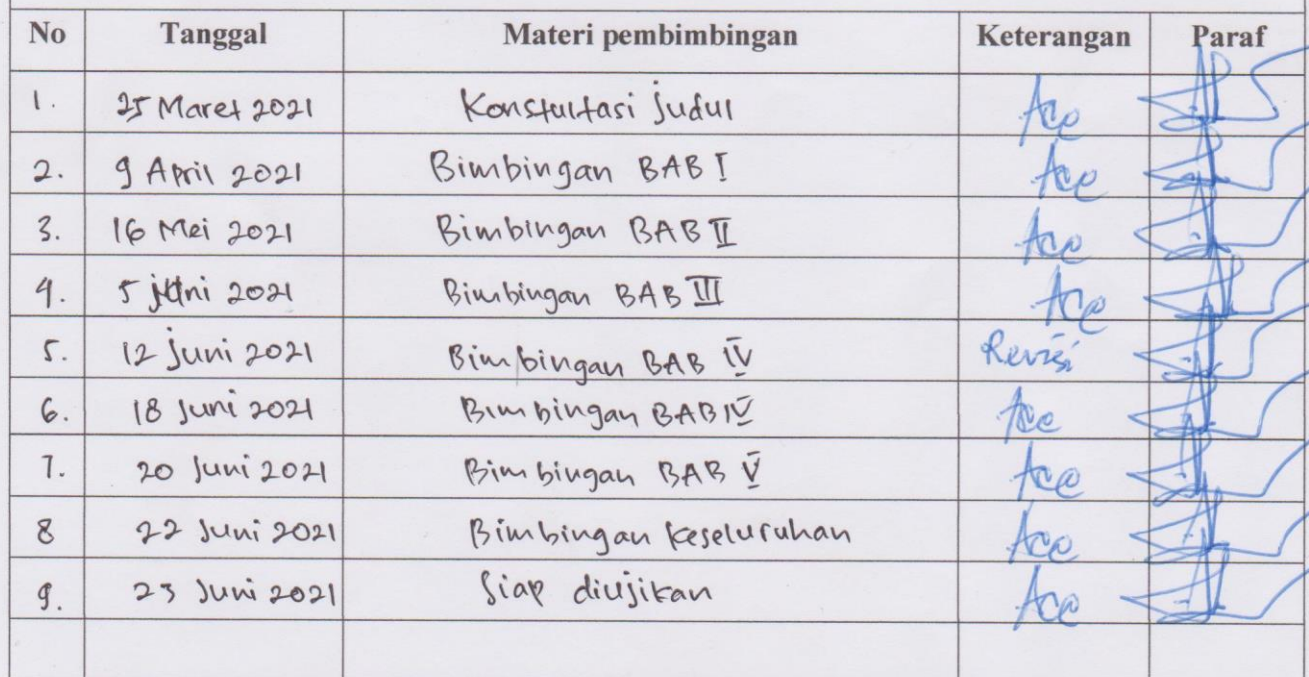 No Tanggal Materi pembimbingan Keterangan Paraf
1. 25 Maret 2021 Konstultasi judul Acc
2. 9 April 2021 Bimbingan BAB I Acc
3. 16 Mei 2021 Bimbingan BAB II Acc
4. 5 juni 2021 Bimbingan BAB III Acc
5. 12 juni 2021 Bimbingan BAB IV Revisi
6. 18 Juni 2021 Bimbingan BAB IV Acc
7. 20 Juni 2021 Bimbingan BAB V Acc
8 22 Juni 2021 Bimbingan keseluruhan Acc
9. 23 Juni 2021 Siap diujikan Acc